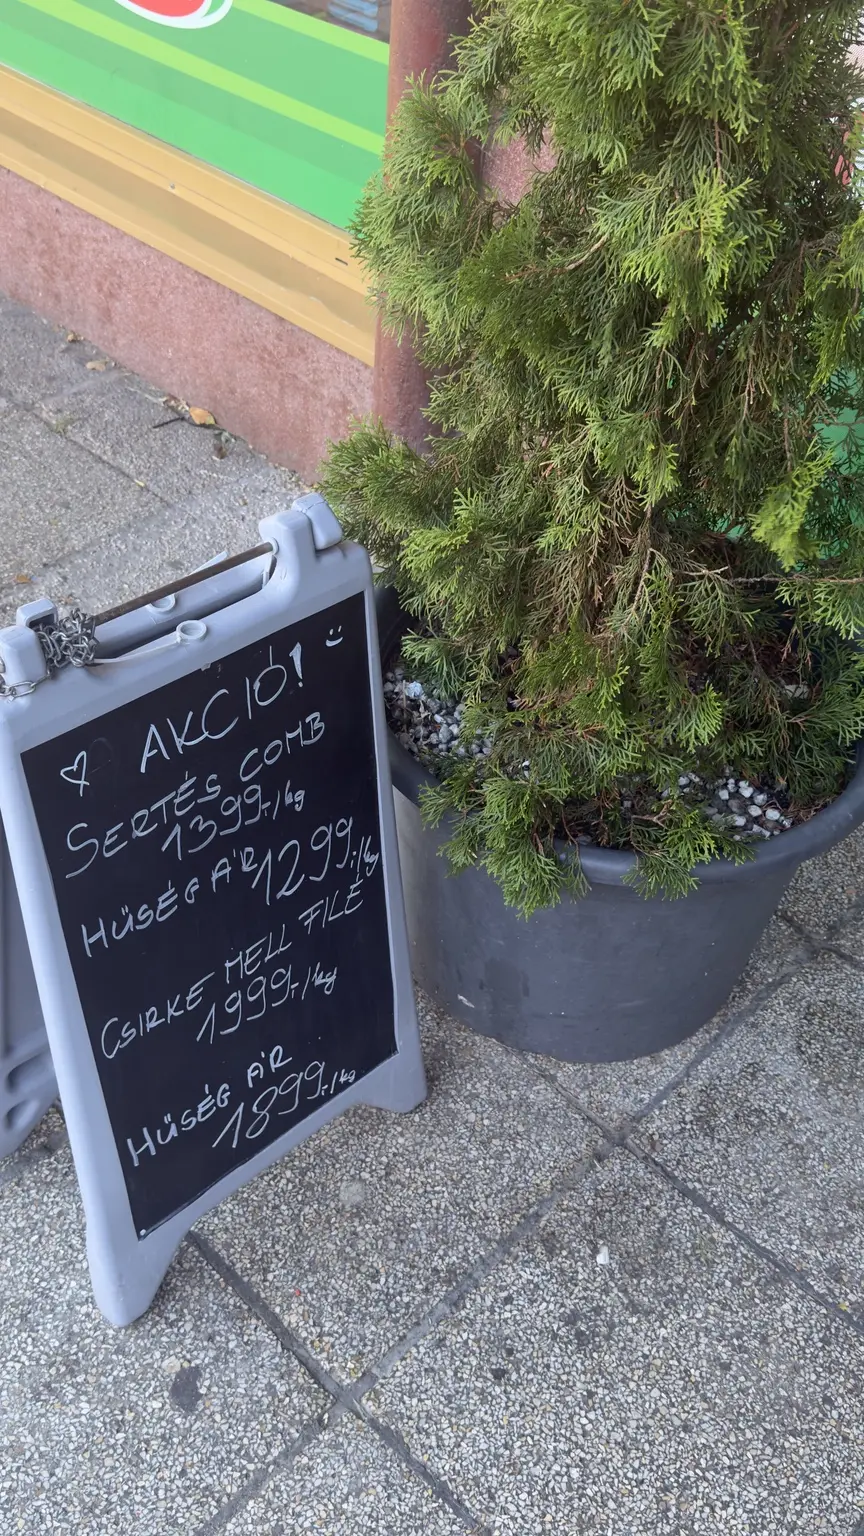 AKCIÓ! :)
SERTÉS COMB
1399.-/kg
HŰSÉG ÁR 1299.-/kg
CSIRKE MELL FILÉ
1999.-/kg
HŰSÉG ÁR
1899.-/kg